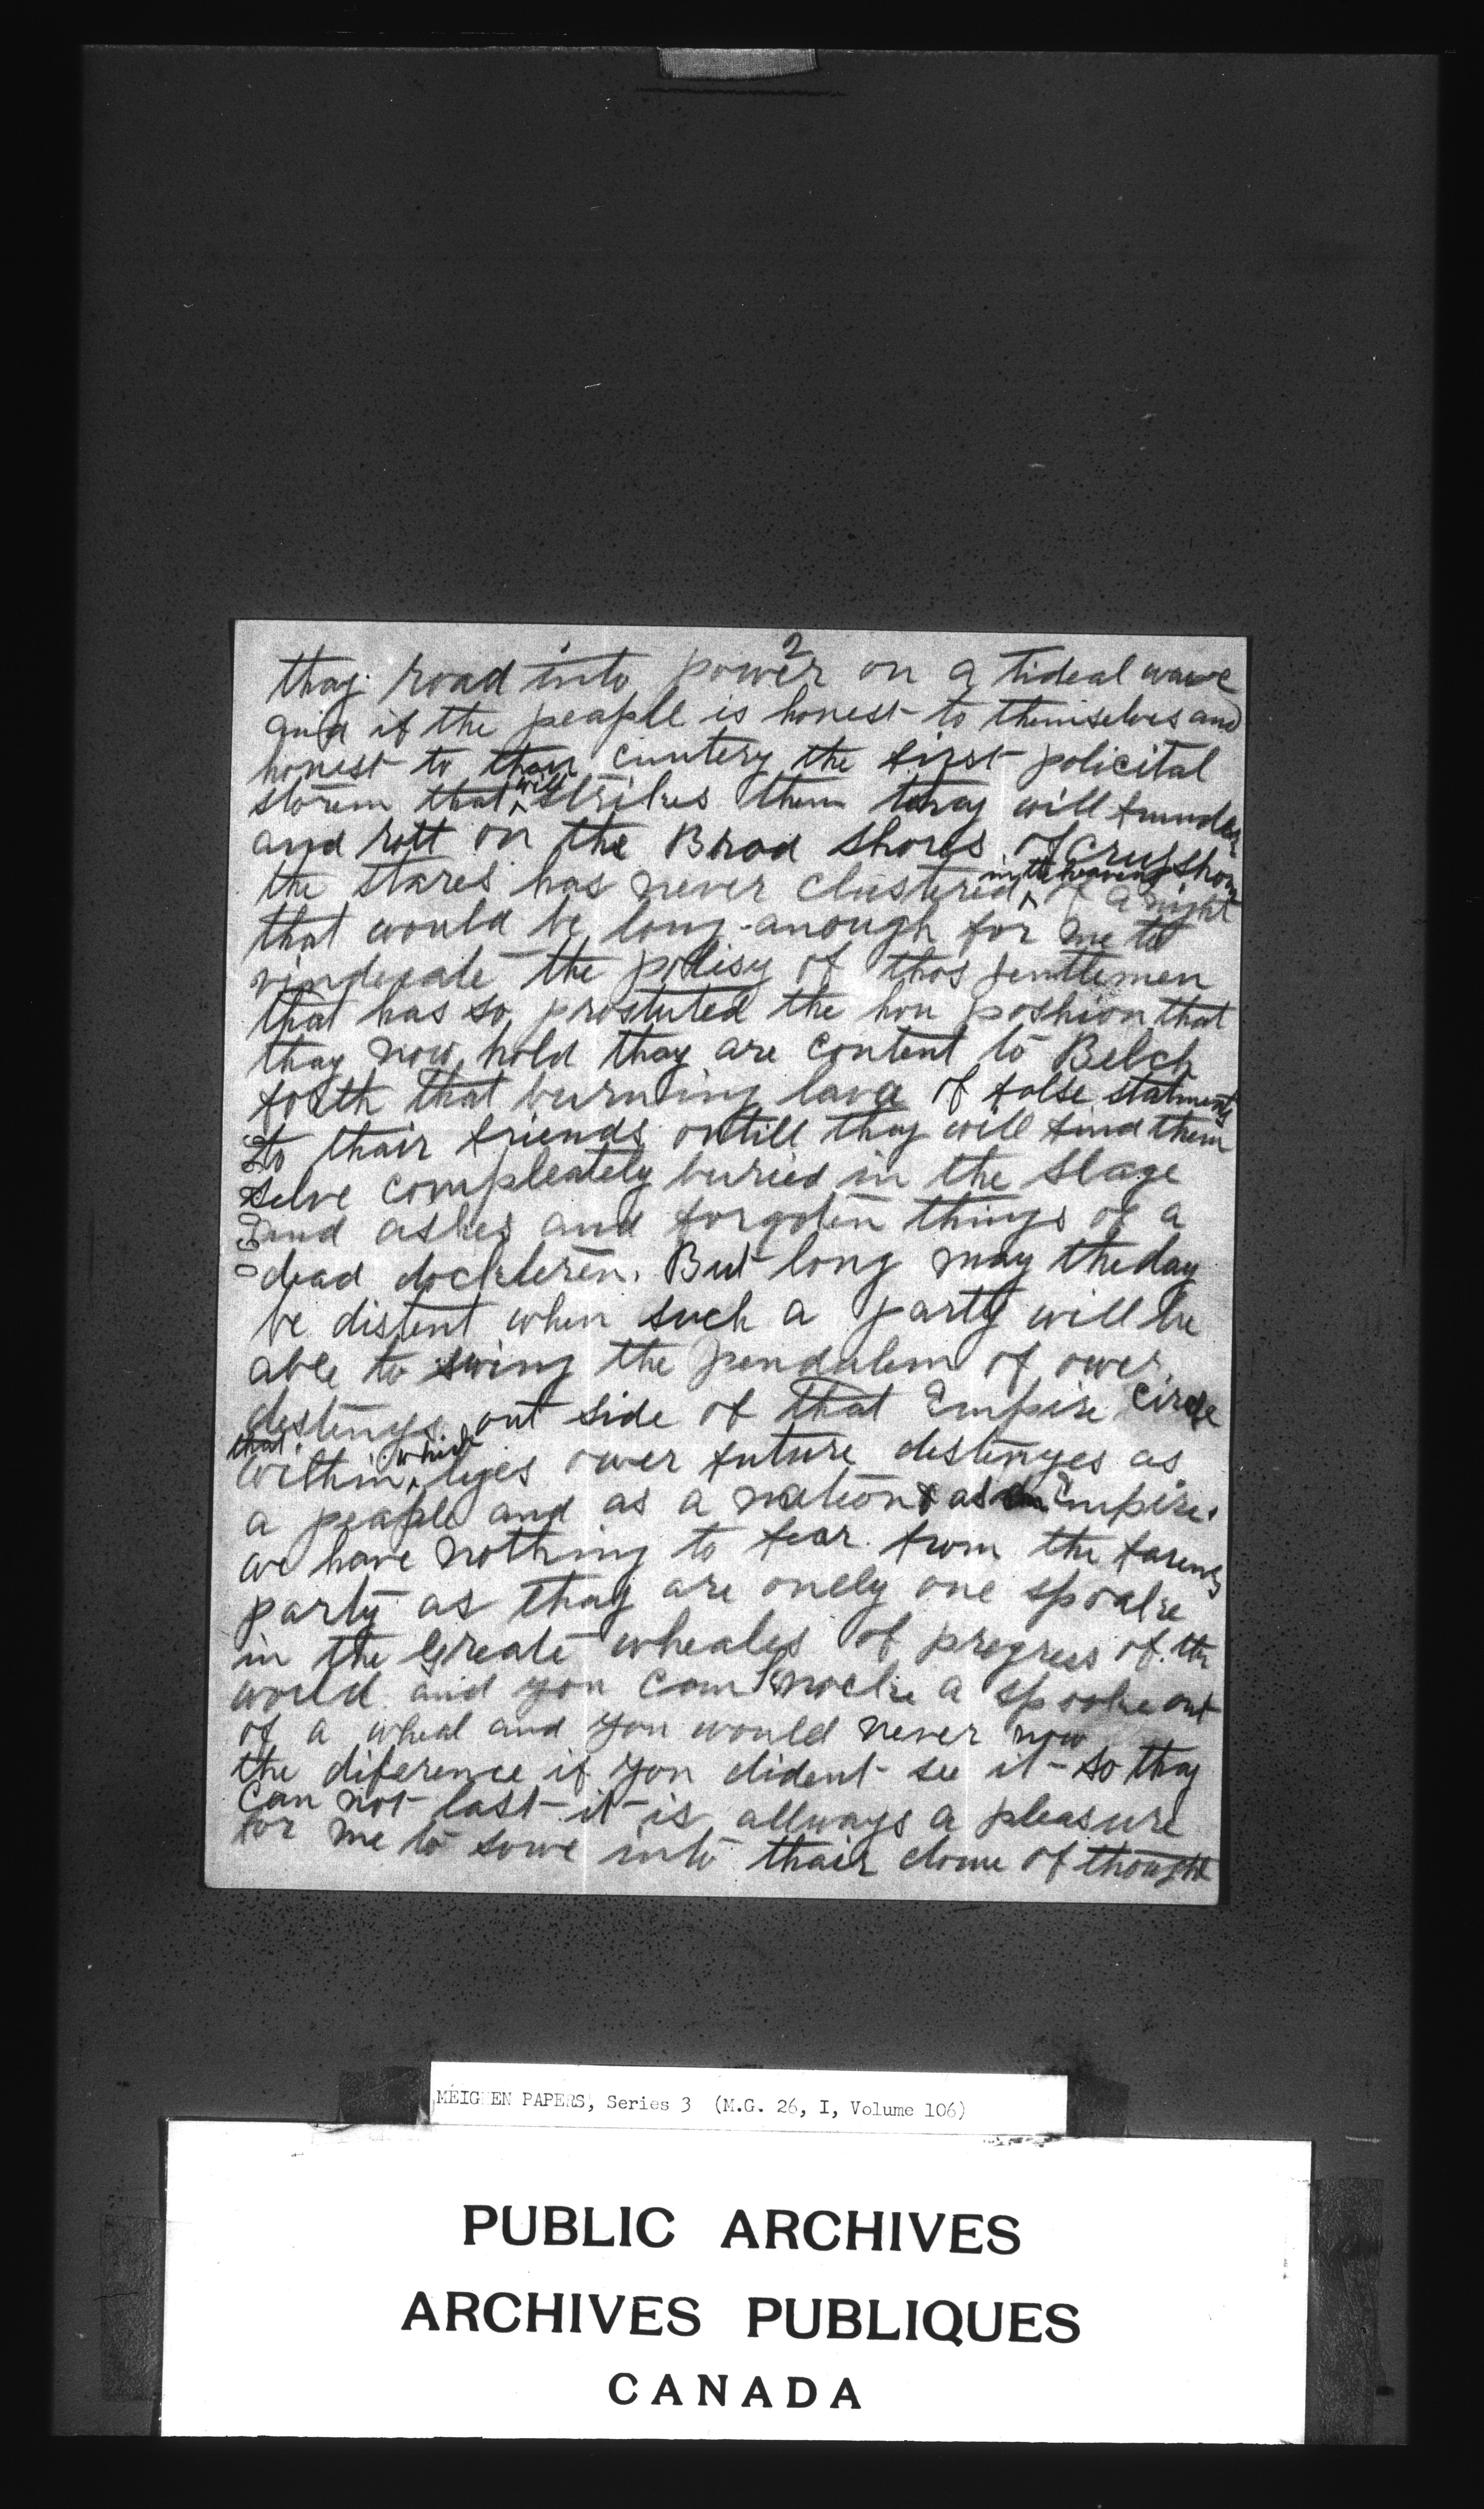 2
thay road into power on a tideal wave
and if the people is honest to themselves and
honest to thair cuntery the first policital
storem that will strikes them thay will
and rott on the Brod Shores of
the stares has never clustered in the heavens of a night
that would be long anough for me to
vindecate the polisy of thos jentlemen
that has so prostuted the hon poshion that
thay now hold thay are content to Belch
forth that burning lava of false statments
to thair friends ontill thay will find them
selve compleately buried in the slage
and ashes and forgoten things of a
dead dockteren. But long may the day
be distent when such a party will be
able to swing the pendalem of ower
destenys out side of that Empire Circle
that within which lyes ower future destinyes as
a people and as a nation & as Empire.
we have nothing to fear from the
party as thay are onely one spoake
in the Greate wheales of progress of the
world and you can knocke a spoake out
of a wheal and you would never now
the diference if you dident see it - so thay
can not last it is allways a pleasure
for me to sowe into thair dome of thought
MEIGHEN PAPERS, Series 3 (M.G. 26, I, Volume 106)
PUBLIC ARCHIVES
ARCHIVES PUBLIQUES
CANADA